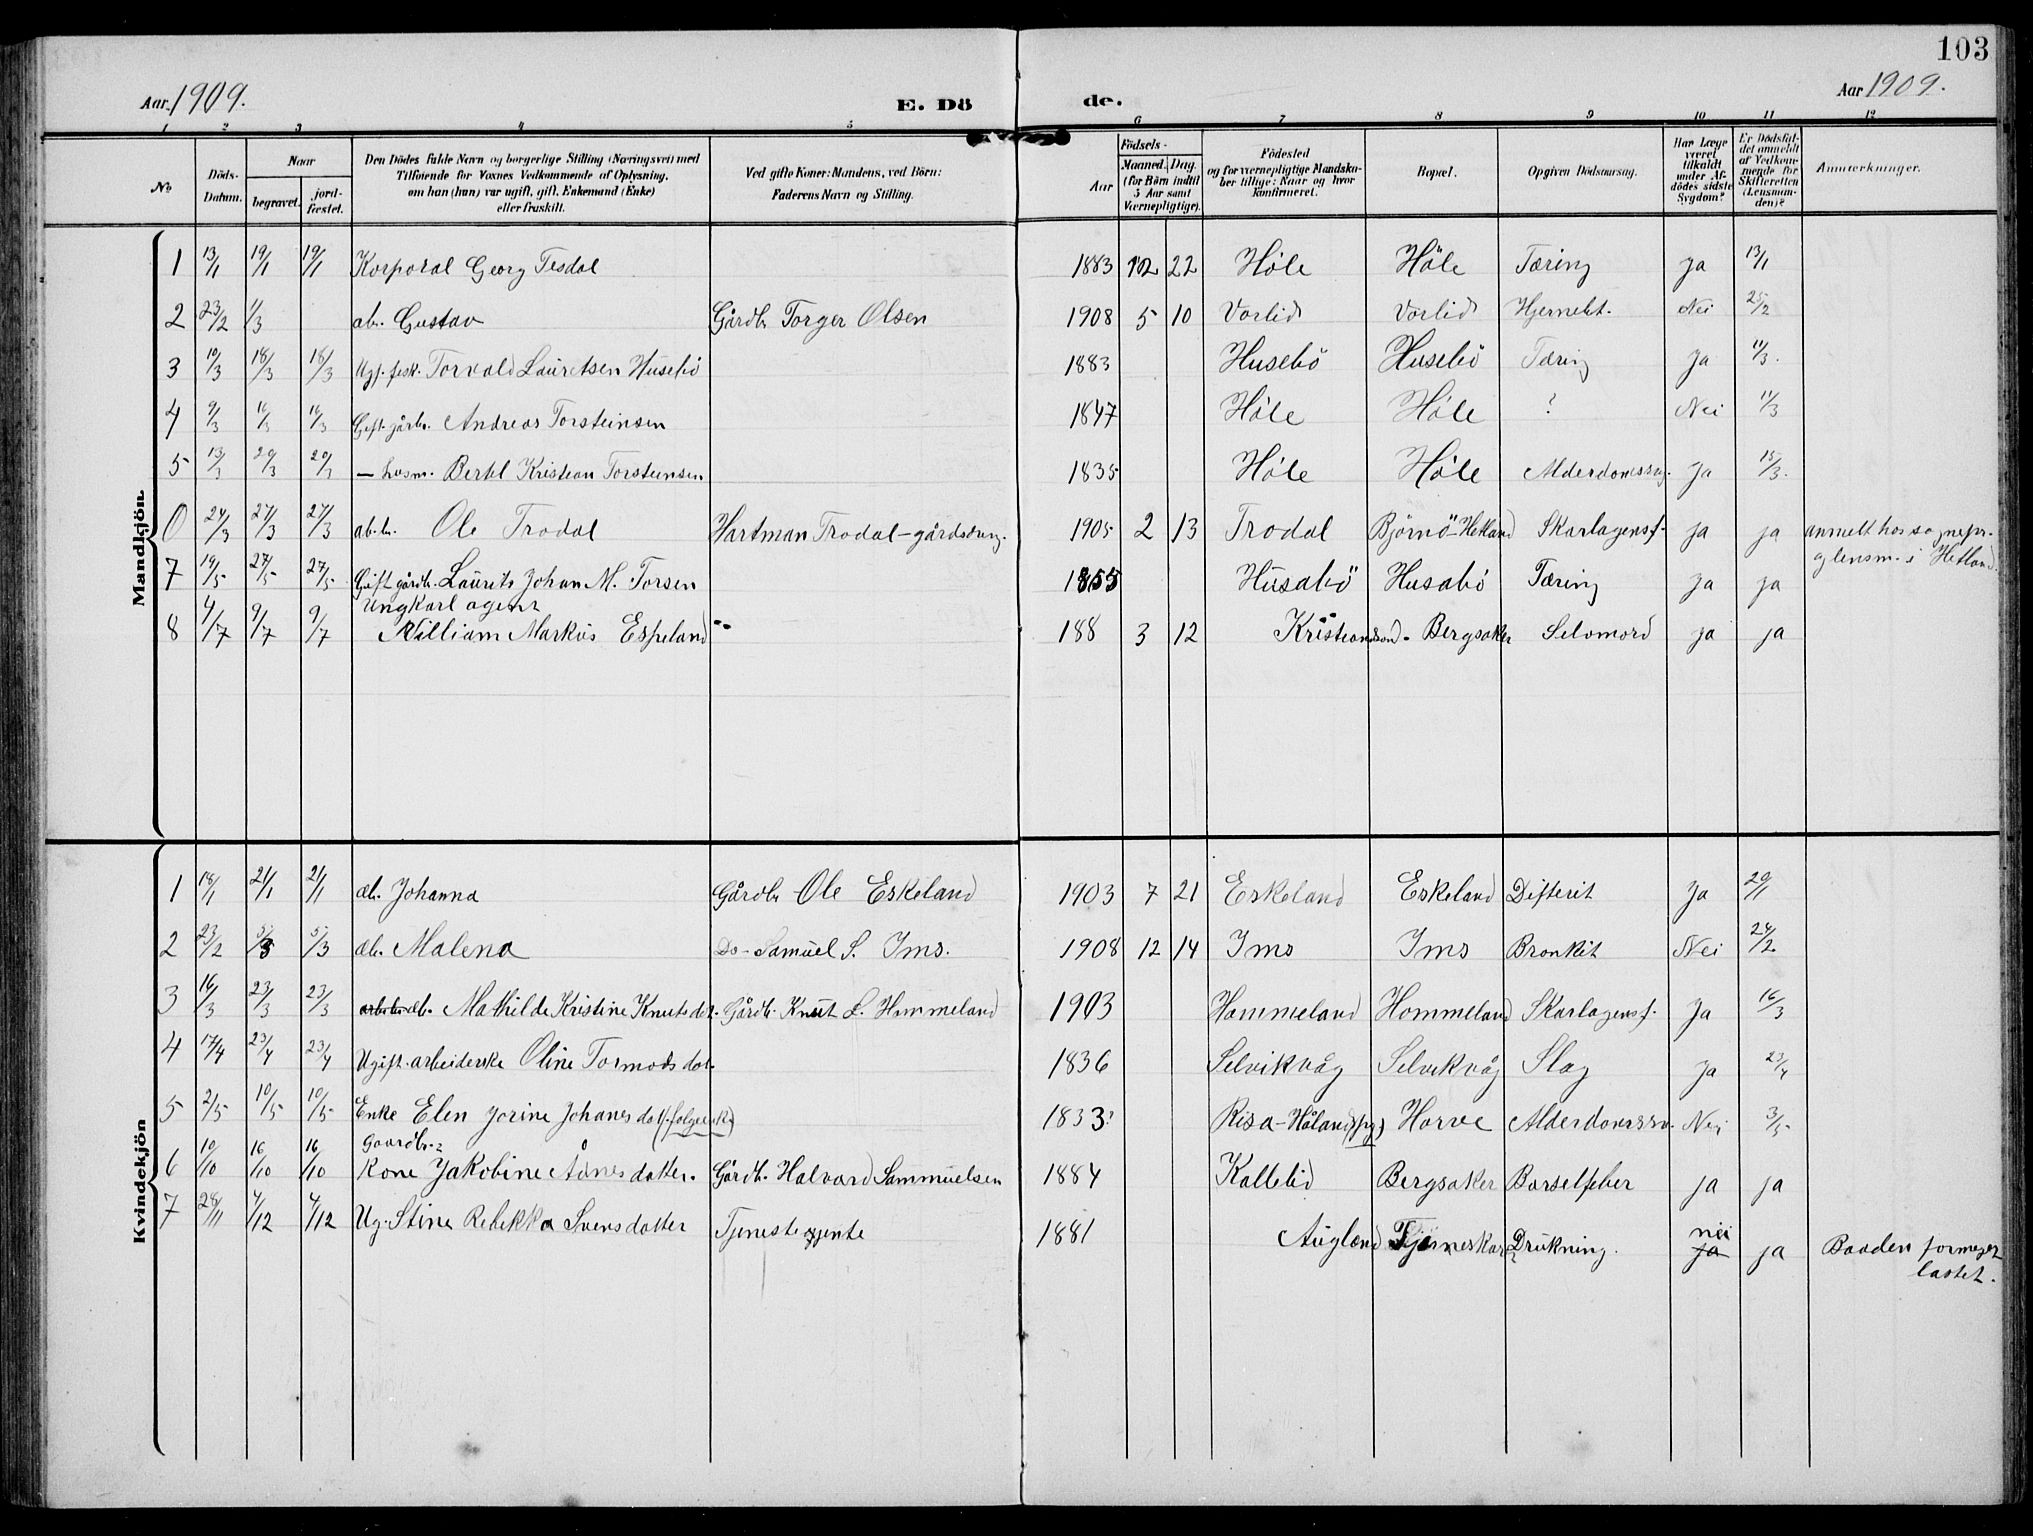 103
Aar 1909. E. Dö de. Aar 1909.
1 2 3 4 5 6 7 8 9 10 11 12
No
Döds-Datum.
Naar begravet. jord-fæstet.
Den Dödes fulde Navn og borgerlige Stilling (Næringsvei) med Tilføiende for Voxnes Vedkommende af Oplysning, om han (hun) var ugift, gift, Enkemand (Enke) eller fraskilt.
Ved gifte Koner: Mandens, ved Börn: Faderens Navn og Stilling.
Födsels-
Aar
Maaned. Dag. (for Börn indtil 5 Aar samt Værnepligtige).
Födested og for værnepligtige Mandskaber tillige: Naar og hvor konfirmeret.
Bopæl.
Opgiven Dödsaarsag.
Har Læge været tilkaldt under Afdödes sidste Sygdom?
Er Dödsfaldet anmeldt af Vedkommende for Skifteretten (Lensmanden)?
Anmerkninger.
Mandkjön.
1 13/1 19/1 19/1 Korporal Georg Tesdal 1883 12 22 Höle Höle Tæring ja 13/1
2 23/2 1/3 ab. Gustav Gårdb. Torger Olsen 1908 5 10 Vorlid Vorlid Hjernebt. Nei 25/2
3 10/3 18/3 18/3 Ugf. fisk. Torvald Lauritsen Husebö 1883 Husebö Husebö Tæring Ja 11/3.
4 9/3 16/3 16/3 Gift gårbr. Andreas Torsteinsen 1847 Höle Höle ? Nei 11/3
5 13/3 20/3 20/3 — husm. Bertel Kristian Torsteinsen 1835 Höle Höle Alderdomssv. Ja 15/3.
6 24/3 27/3 27/3 ab.b. Ole Trodal Hartman Trodal - gårdsdreng. 1905 2 13 Trodal Björnö - Hetland Skarlagensf. ja ja anmelt hos sognepr. og lensm. i Hetland.
7 19/5 27/5 27/5 Gift gårdb. Laurits Johan M. Torsen 1855 Husabö Husabö Tæring ja ja
8 4/7 9/7 9/7 Ungkarl agent
William Markus Espeland " 188 3 12 Kristiansand. Bergsaker Selvmord ja ja
Kvindekjön
1 18/1 21/1 21/1 ab. Johanna Gårdb. Ole Eskeland 1903 7 21 Eskeland Eskeland Difterit Ja 20/1
2 23/2 5/3 5/3 ab. Malena Do - Samuel S. Ims. 1908 12 14 Ims Ims Bronkit Nei 24/2
3 16/3 23/3 23/3 ab. Mathilde Kristine Knutsdot. Gårdb. Knut L. Hommeland 1903 Hommeland Hommeland Skarlagensf. Ja 16/3
4 17/4 23/4 23/4 Ugift arbeiderske Oline Tormodsdot. 1836 Selvikvåg Selvikvåg Slag Ja 23/4
5 2/5 10/5 10/5 Enke Elen Jorine Johanesdot. (folgeenke) 1833 Risa - Håland (spg) Horve Alderdomssv. Nei 3/5
6 10/10 16/10 16/10 Gaardbr.
kone Jakobine Ådnesdatter. Gårdb. Halvard Sammuelsen 1884 Kallelid Bergsaker Barselfeber ja ja
7 28/11 4/12 4/12 Ug. Stine Rebekka Svensdatter Tjenestegjente 1881 Augland Drukning. ja nei ja Baaden formeget lastet.